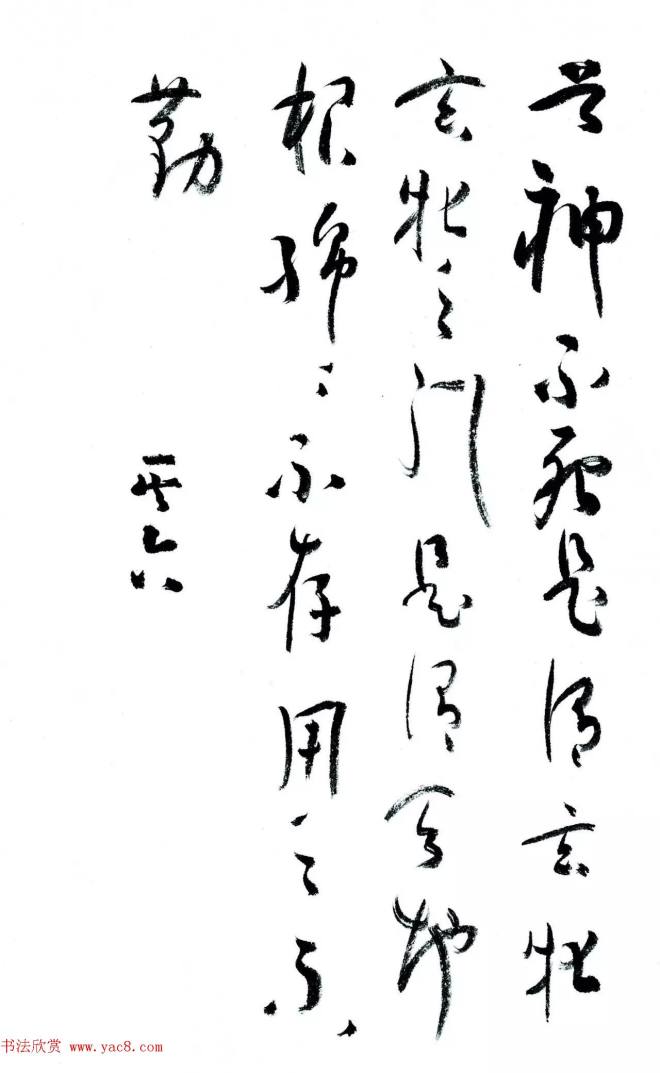 谷神不死是謂玄牝
玄牝之門是謂天地
根綿〻若存用之不
勤
其六
书法欣赏 www.yac8.com